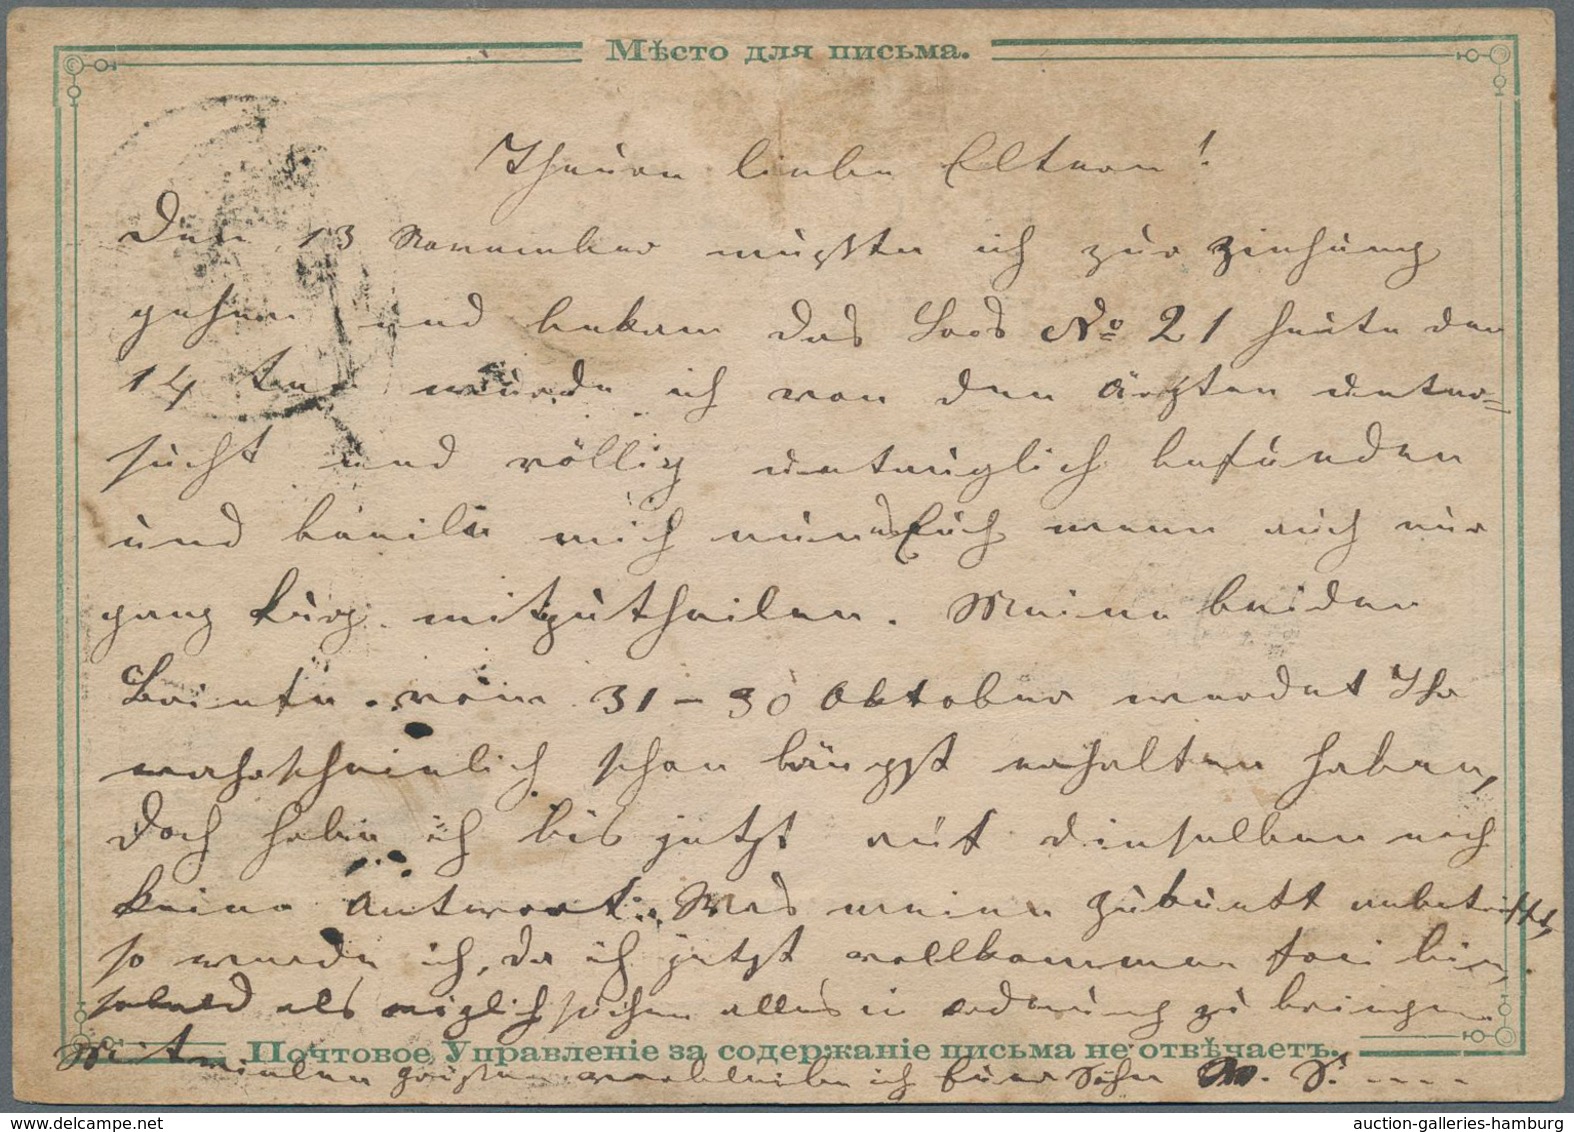 Мѣсто для письма.
Theure liebe Eltern!
Den 13 November mußte ich zur Ziehung
gehen und bekam das Loos No 21 heute den
14 ten wurde ich von den Ärzten unter=
sucht und völlig untauglich befunden
und beeile mich nun es Euch wenn auch nur
ganz kurz mitzutheilen. Meine beiden
Briefe vom 31 – 30 Oktober werdet Ihr
wahrscheinlich schon längst erhalten haben,
doch habe ich bis jetzt auf dieselben noch
keine Antwort. Was meine Zukunft anbetrifft,
so werde ich, da ich jetzt vollkommen frei bin,
sobald als möglich suchen alles in Ordnung zu bringen
Почтовое Управленіе за содержаніе письма не отвѣчаетъ.
Mit vielen Grüßen verbleibe ich Euer Sohn M. S. ....
auction-galleries-hamburg